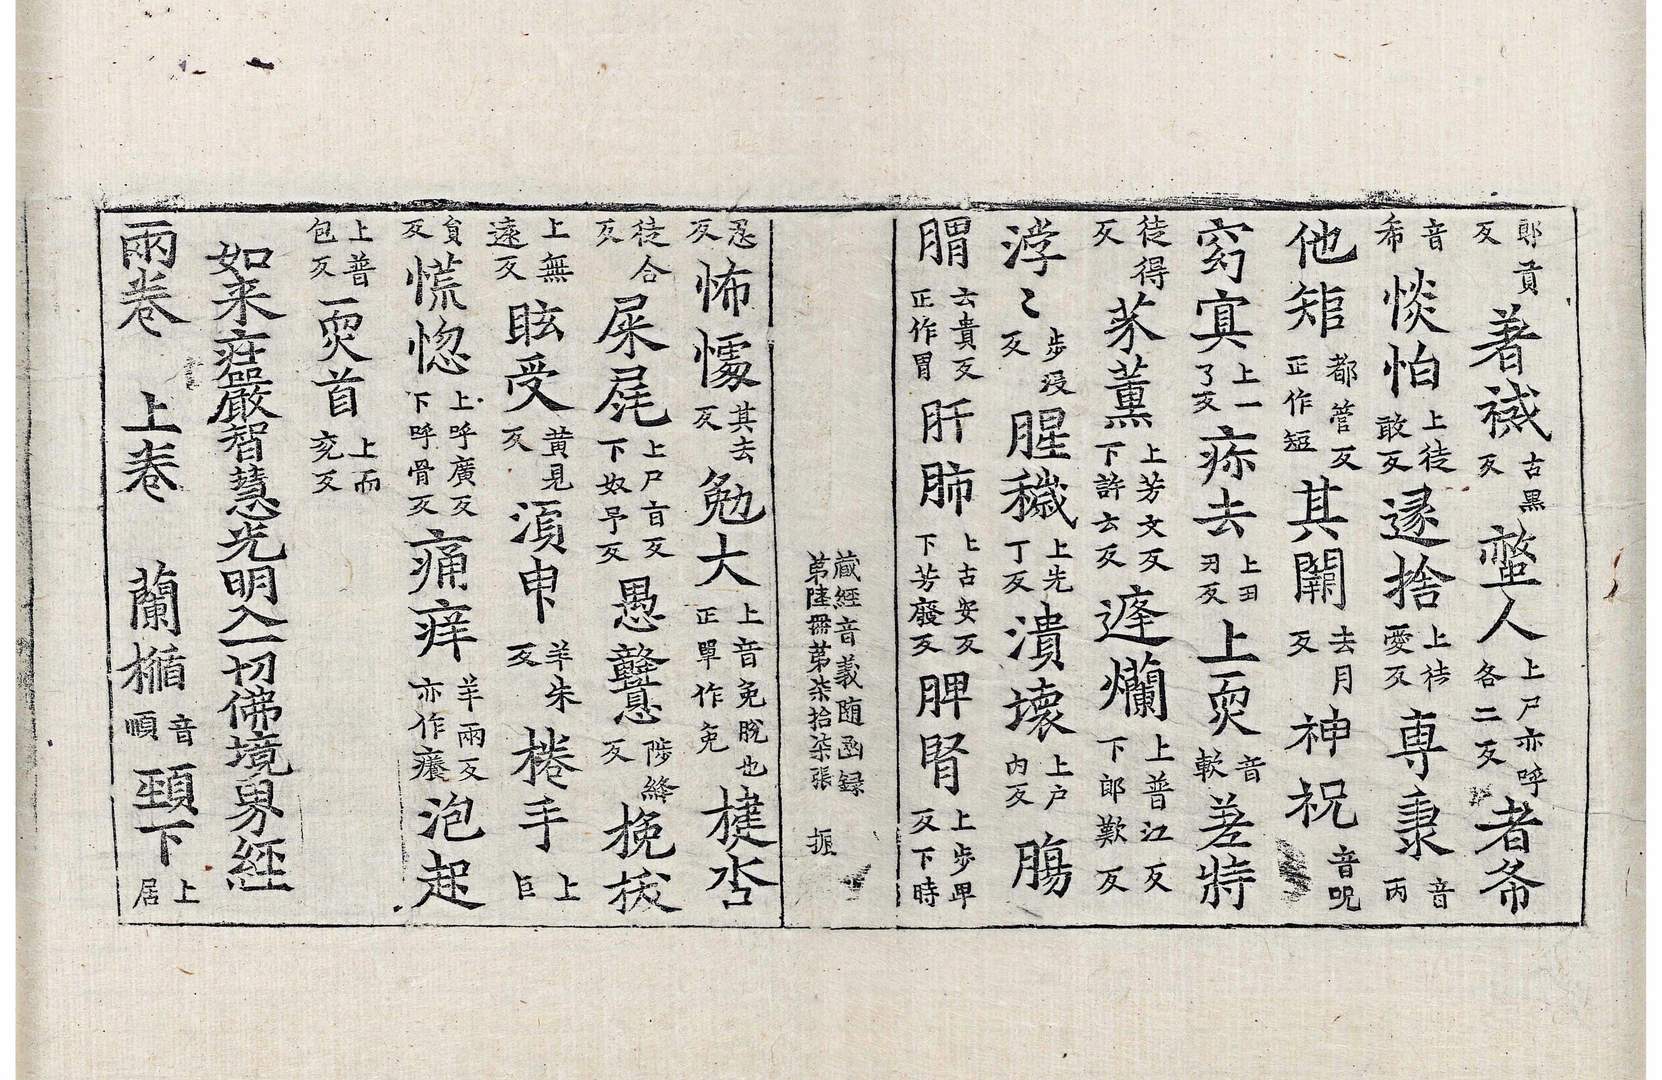 郎貢反著裓古黑反螫人上尸亦呼各二反者希
音希惔怕上徒敢反遂捨上徒愛反專秉音丙
他矩都管反正作短其闕去月反神祝音呪
窈寞上一了反疢去上丑刃反上耎音軟差特
徒得反菾薰上芳文反下許云反逄爛上普江反下郎歎反
浡〻步没反腥穢上先丁反潰壞上户内反腸
膶云貴反正作胃肝肺上古安反下芳廢反脾腎上步卑反下時
藏經音義随函録
第陸冊第柒拾柒張 振
忍反怖懅其去反勉大上音免脫也正單作免
徒合反屎尾上尸旨反下奴吊反愚戇陟絳反挽拔
上無遠反眩受黄見反湏申羊朱反捲手上巨
負反慌惚上呼廣反下呼骨反痛痒羊兩反亦作癢泡起
上普包反耎首上而兖反
如来疘嚴智慧光明入一切佛境界經
兩卷 上卷 蘭楯音順頸下上居